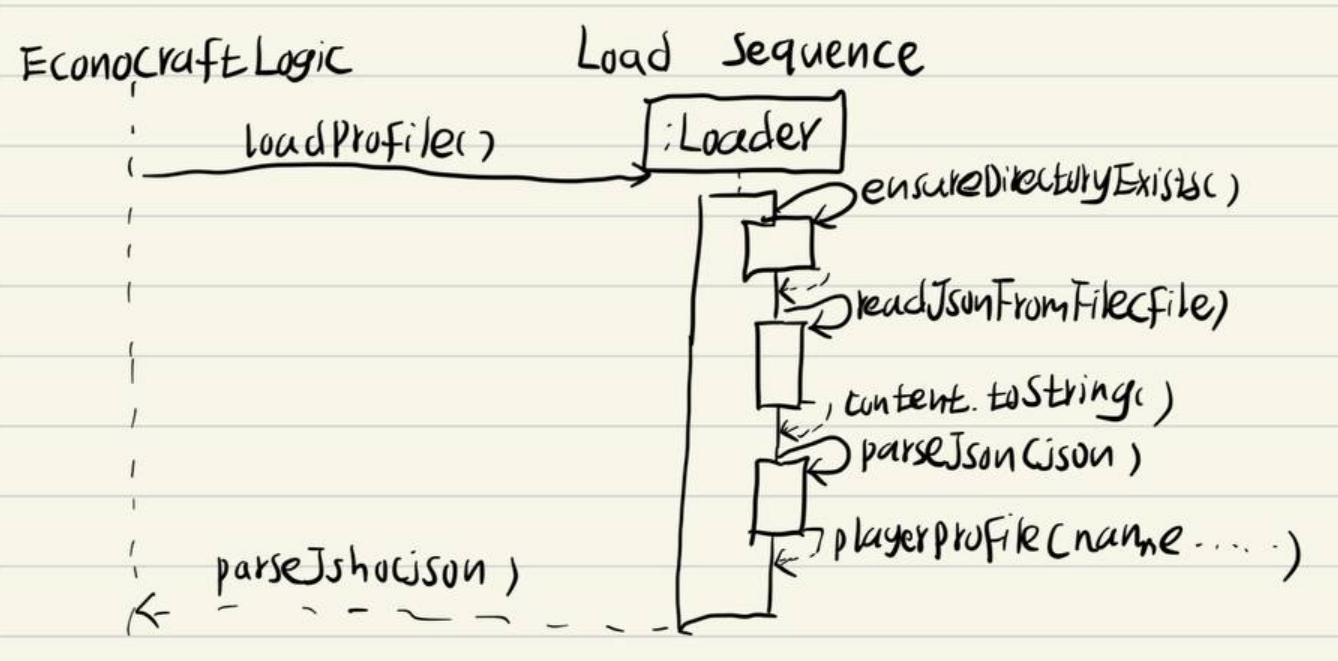 EconocraftLogic
Load Sequence
loadProfile()
:Loader
ensureDirectoryExists()
readJsonFromFile(file)
content.toString()
parseJson(json)
playerprofile(name.....)
parseJshocjson)